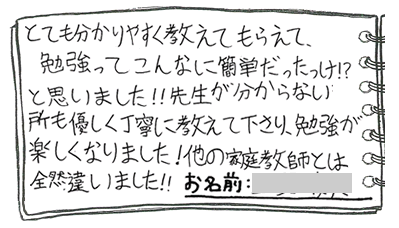 とても分かりやすく教えてもらえて、
勉強ってこんなに簡単だったっけ!?
と思いました!!先生が分からない
所も優しく丁寧に教えて下さり、勉強が
楽しくなりました!他の家庭教師とは
全然違いました!! お名前: